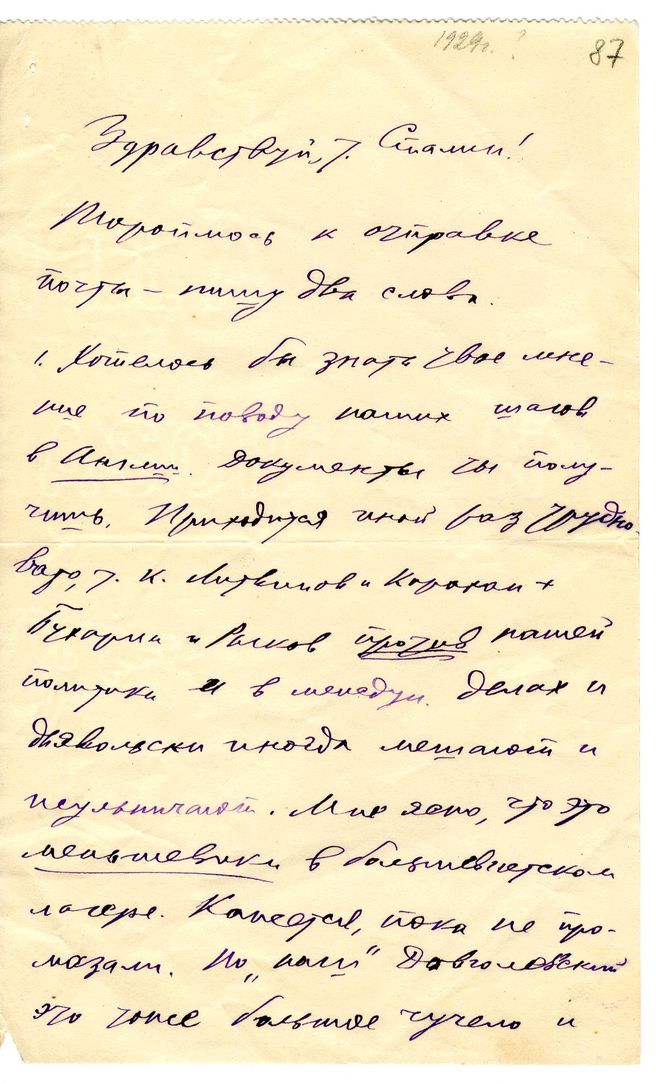 1929г.?
87
Здравствуй, т. Сталин!
Тороплюсь к отправке
почты – пишу два слова.
1. Хотелось бы знать твое мне-
ние по поводу наших шагов
в Англии. Документы ты полу-
чишь. Приходится иной раз трудно-
вато, т. к. Литвинов и Карахан +
Бухарин и Рыков против нашей
политики и в междун. делах и
дьявольски иногда мешают и
жульничают. Мне ясно, что это
меньшевики в большевистском
лагере. Кажется, пока не про-
мазали. Но „наш" Довгалевский
это тоже большое чучело и